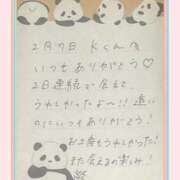 2月7日 Kくんへ
いつもありがとう♡
2日連続で会えて、
うれしかったよ〜!!遠い
のにいつもありがとう!
お土産もうれしかった!
また会えるの楽しみ!